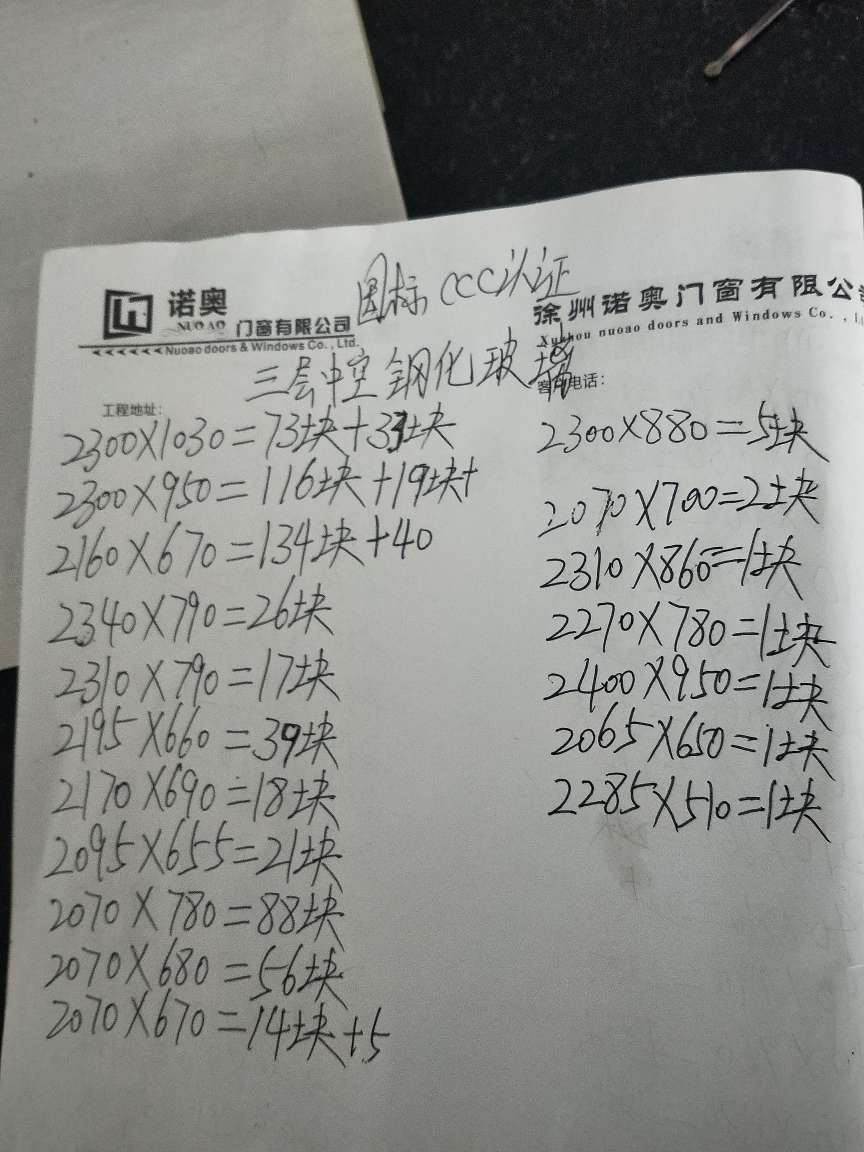 国标CCC认证
诺奥
NUOAO 门窗有限公司
Nuoao doors & Windows Co., Ltd.
徐州诺奥门窗有限公
Xuzhou nuoao doors and Windows Co.,
三层中空钢化玻璃
工程地址:
客户电话:
2300×1030=73块+33块
2300×950=116块+19块+
2160×670=134块+40
2340×790=26块
2310×790=17块
2195×660=39块
2170×690=18块
2095×655=21块
2070×780=88块
2070×680=56块
2070×670=14块+5
2300×880=5块
2070×700=2块
2310×860=1块
2270×780=1块
2400×950=1块
2065×650=1块
2285×510=1块